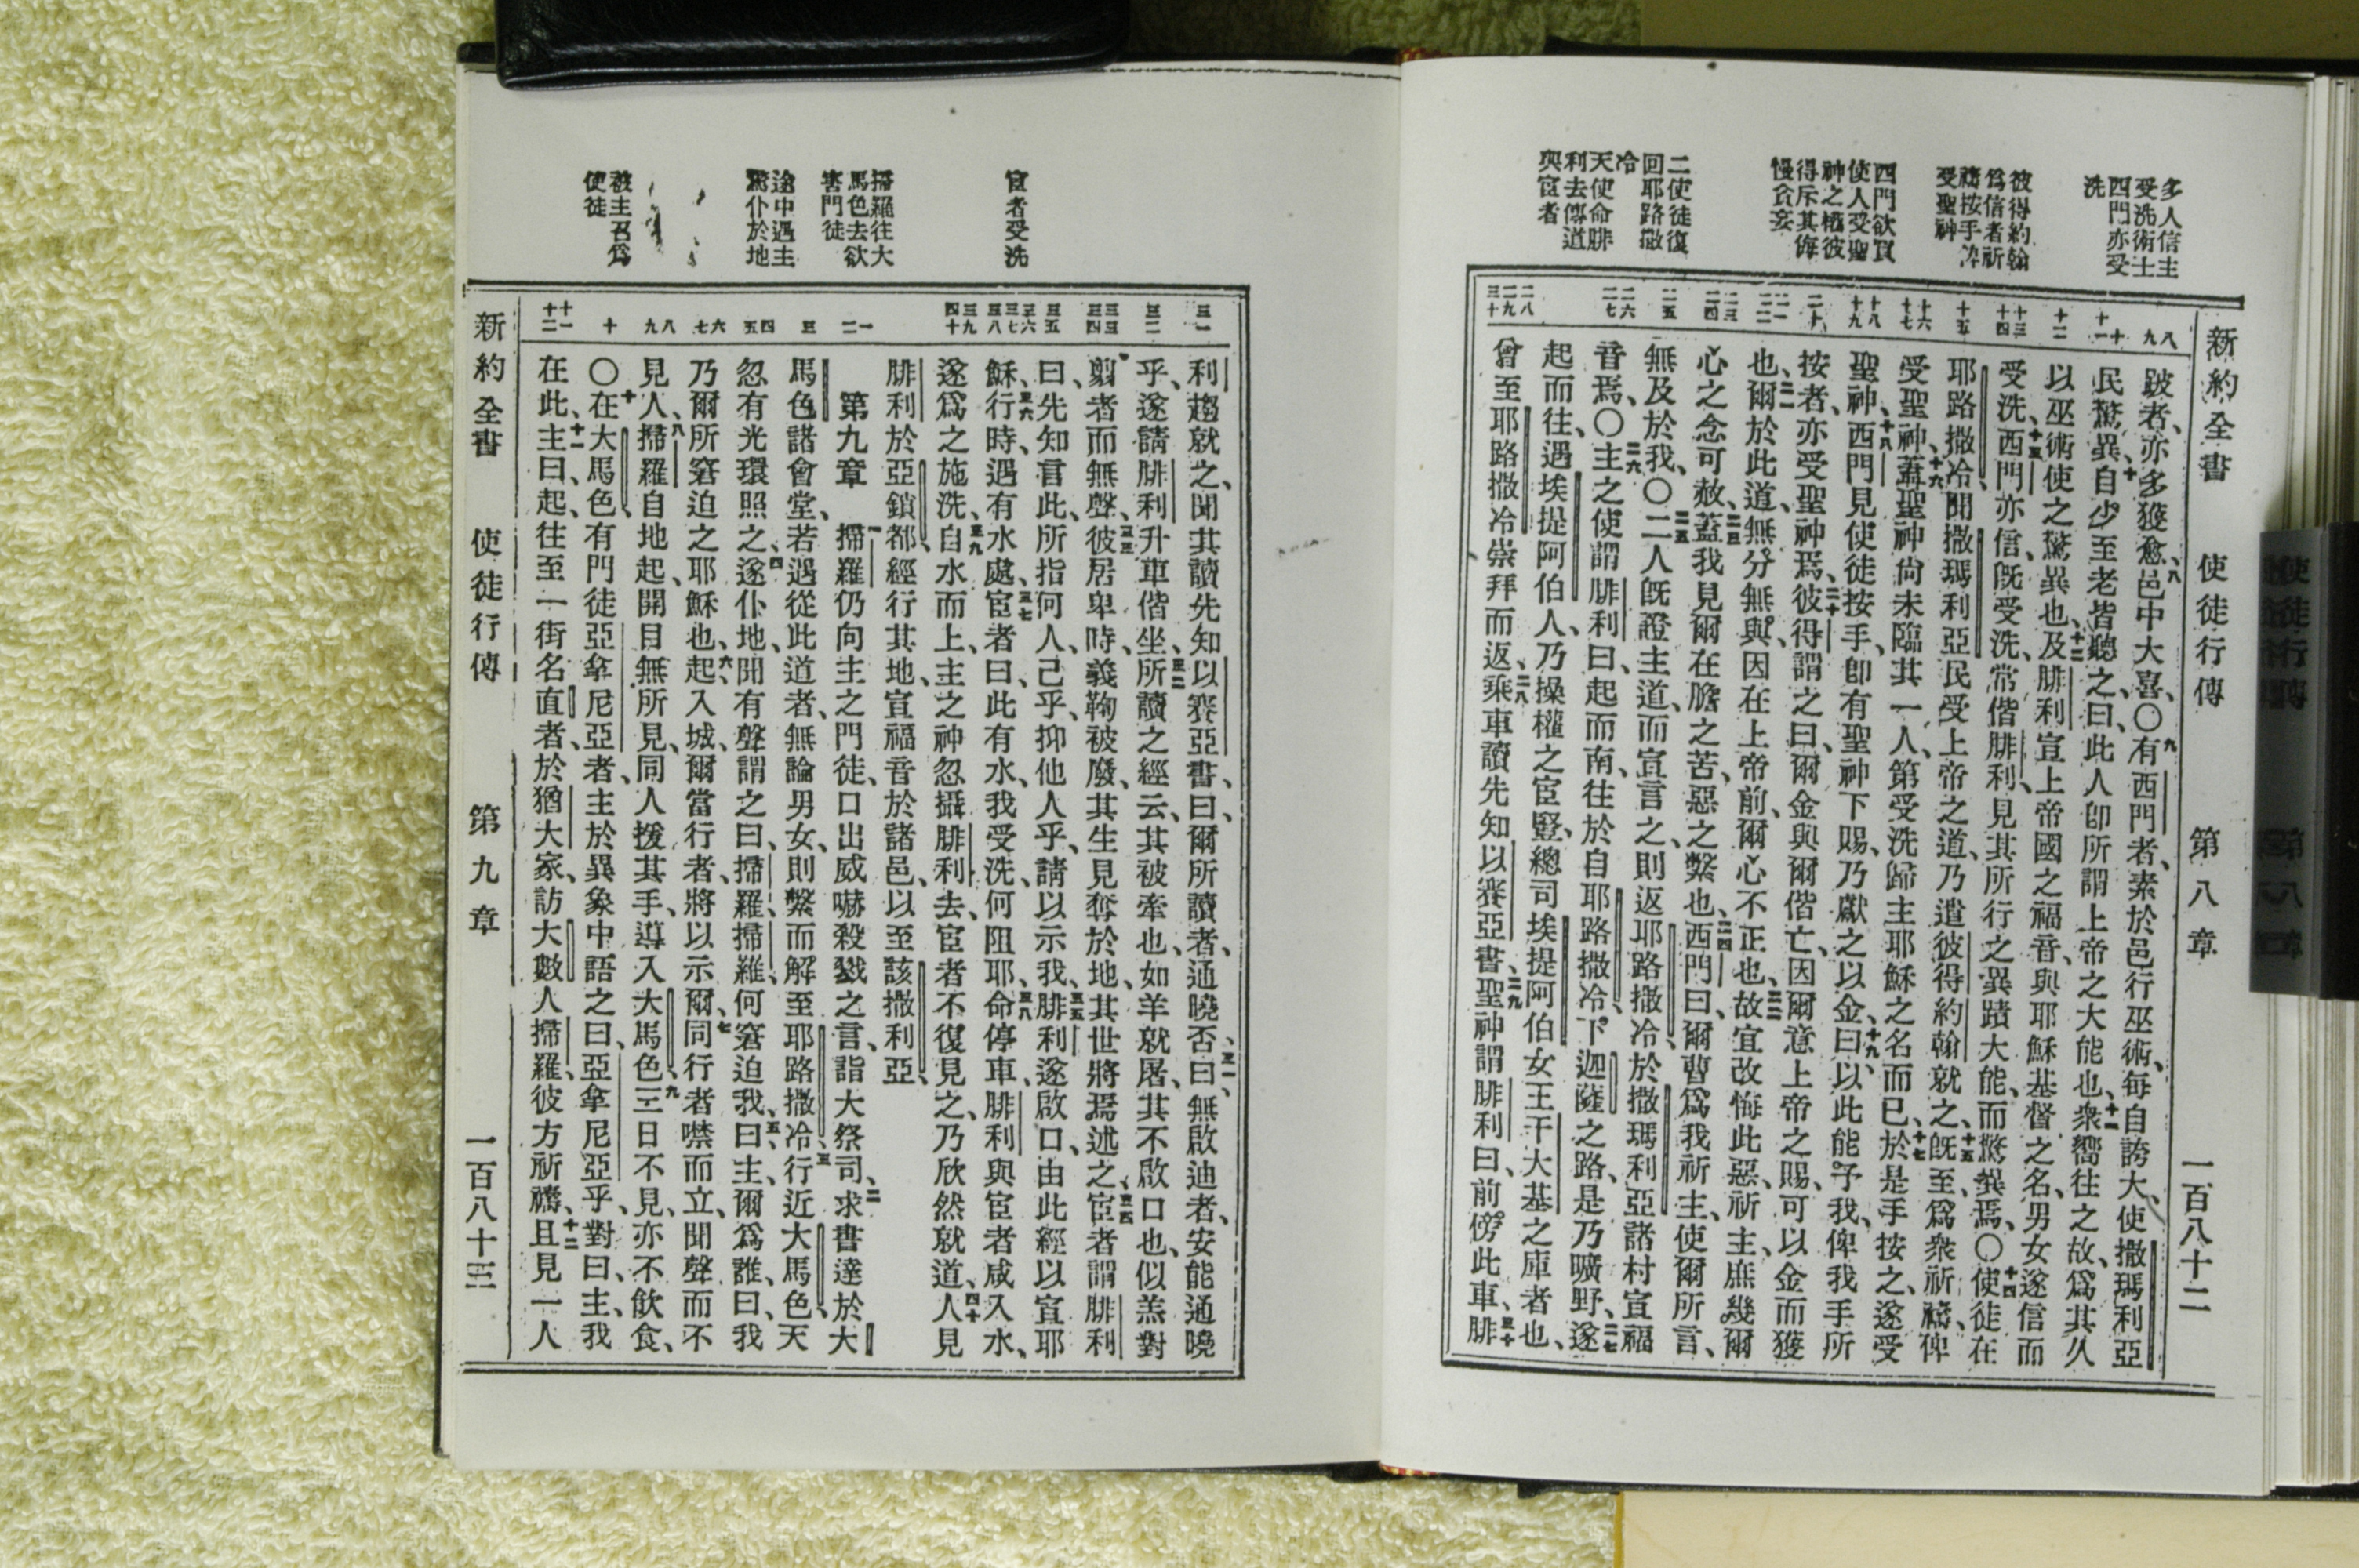 新約全書 使徒行傳 第八章 一百八十二
多人信主
受洗術士
西門亦受
洗
彼得約翰
爲信者祈
禱按手
受聖神
西門欲買
使人受聖
神之權彼
得斥其侮
慢貪妄
二使徒復
回耶路撒
冷
天使命腓
利去傳道
與宦者
八 九
十 十一
十二
十三 十四
十五
十六 十七
十八 十九
二十
二一 二二
二三 二四
二五
二六 二七
二八 二九 三十
跛者、亦多獲愈、八邑中大喜、〇九有西門者、素於邑行巫術、每自誇大、使撒瑪利亞
民驚異、十自少至老皆聽之、曰、此人卽所謂上帝之大能也、十一衆嚮往之、故爲其久
以巫術使之驚異也、十二及腓利宣上帝國之福音、與耶穌基督之名、男女遂信而
受洗、十三西門亦信、旣受洗、常偕腓利、見其所行之異蹟大能、而驚異焉、〇十四使徒在
耶路撒冷、聞撒瑪利亞民受上帝之道、乃遣彼得約翰就之、十五旣至、爲衆祈禱、俾
受聖神、十六蓋聖神尙未臨其一人、第受洗歸主耶穌之名而已、十七於是手按之、遂受
聖神、十八西門見使徒按手、卽有聖神下賜、乃獻之以金、十九曰、以此能予我、俾我手所
按者、亦受聖神焉、二十彼得謂之曰、爾金與爾偕亡、因爾意上帝之賜、可以金而獲
也、二一爾於此道、無分無與、因在上帝前、爾心不正也、二二故宜改悔此惡、祈主、庶幾爾
心之念可赦、二三蓋我見爾在膽之苦、惡之繫也、二四西門曰、爾曹爲我祈主、使爾所言、
無及於我、〇二五二人旣證主道、而宣言之、則返耶路撒冷、於撒瑪利亞諸村宣福
音焉、〇二六主之使謂腓利曰、起而南、往於自耶路撒冷、下迦薩之路、是乃曠野、二七遂
起而往、遇埃提阿伯人、乃操權之宦豎、總司埃提阿伯女王干大基之庫者也、
曾至耶路撒冷崇拜而返、二八乘車讀先知以賽亞書、二九聖神謂腓利曰、前傍此車、三十腓
官者受洗
掃羅往大
馬色去欲
害門徒
途中遇主
驚仆於地
被主召爲
使徒
三一
三二
三三 三四
三五
三六 三七 三八
三九 四十
一 二
三
四 五
六 七
八 九
十
十一 十二
利趨就之、聞其讀先知以賽亞書、曰、爾所讀者、通曉否、三一曰、無啟迪者、安能通曉
乎、遂請腓利升車偕坐、三二所讀之經云、其被牽也、如羊就屠、其不啟口也、似羔對
剪者而無聲、三三彼居卑時、義鞫被廢、其生見奪於地、其世將焉述之、三四宦者謂腓利
曰、先知言此、所指何人、己乎、抑他人乎、請以示我、三五腓利遂啟口、由此經以宣耶
穌、三六行時、遇有水處、三七宦者曰、此有水、我受洗、何阻耶、三八命停車、腓利與宦者咸入水、
遂爲之施洗、三九自水而上、主之神忽攝腓利去、宦者不復見之、乃欣然就道、四十人見
腓利於亞鎖都、經行其地、宣福音於諸邑、以至該撒利亞、
第九章 一掃羅仍向主之門徒、口出威嚇殺戮之言、詣大祭司、二求書達於大
馬色諸會堂、若遇從此道者、無論男女、則繫而解至耶路撒冷、三行近大馬色、天
忽有光環照之、四遂仆地、聞有聲謂之曰、掃羅、掃羅、何窘迫我、五曰、主、爾爲誰、曰、我
乃爾所窘迫之耶穌也、六起、入城、爾當行者、將以示爾、七同行者噤而立、聞聲而不
見人、八掃羅自地起、開目無所見、同人援其手、導入大馬色、九三日不見、亦不飮食、
〇十在大馬色、有門徒亞拿尼亞者、主於異象中語之曰、亞拿尼亞乎、對曰、主、我
在此、十一主曰、起、往至一街名直者、於猶大家、訪大數人掃羅、彼方祈禱、十二且見一人
新約全書 使徒行傳 第九章 一百八十三